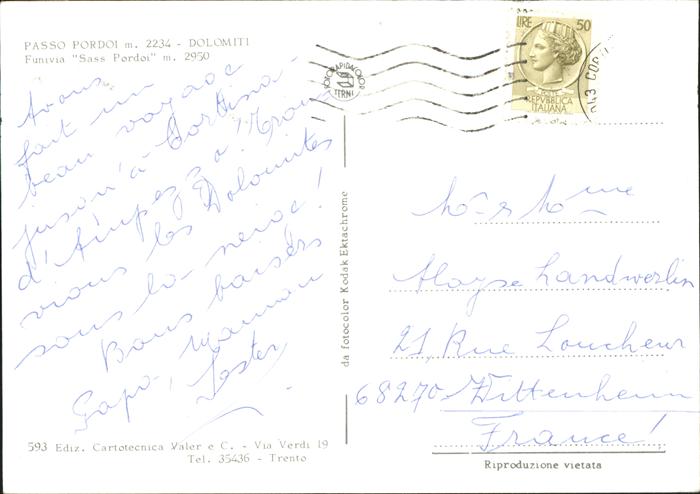 PASSO PORDOI m. 2234 - DOLOMITI
Funivia "Sass Pordoi" m. 2950
Avons
fait un
beau voyage
jusqu'à Cortina
d'Ampezzo! Trou
vions les Dolomites
sous la neige!
Bons baisers
Papa, Maman
Lester
593 Ediz. Cartotecnica Valer e C. - Via Verdi 19
Tel. 35436 - Trento
FOTORAPIDACOLOR
TERNI
da fotocolor Kodak Ektachrome
LIRE 50
REPVBBLICA
ITALIANA
Mr & Mme
Aloyse Landwerlin
21, Rue Loucheur
68270 Wittenheim
France!
Riproduzione vietata